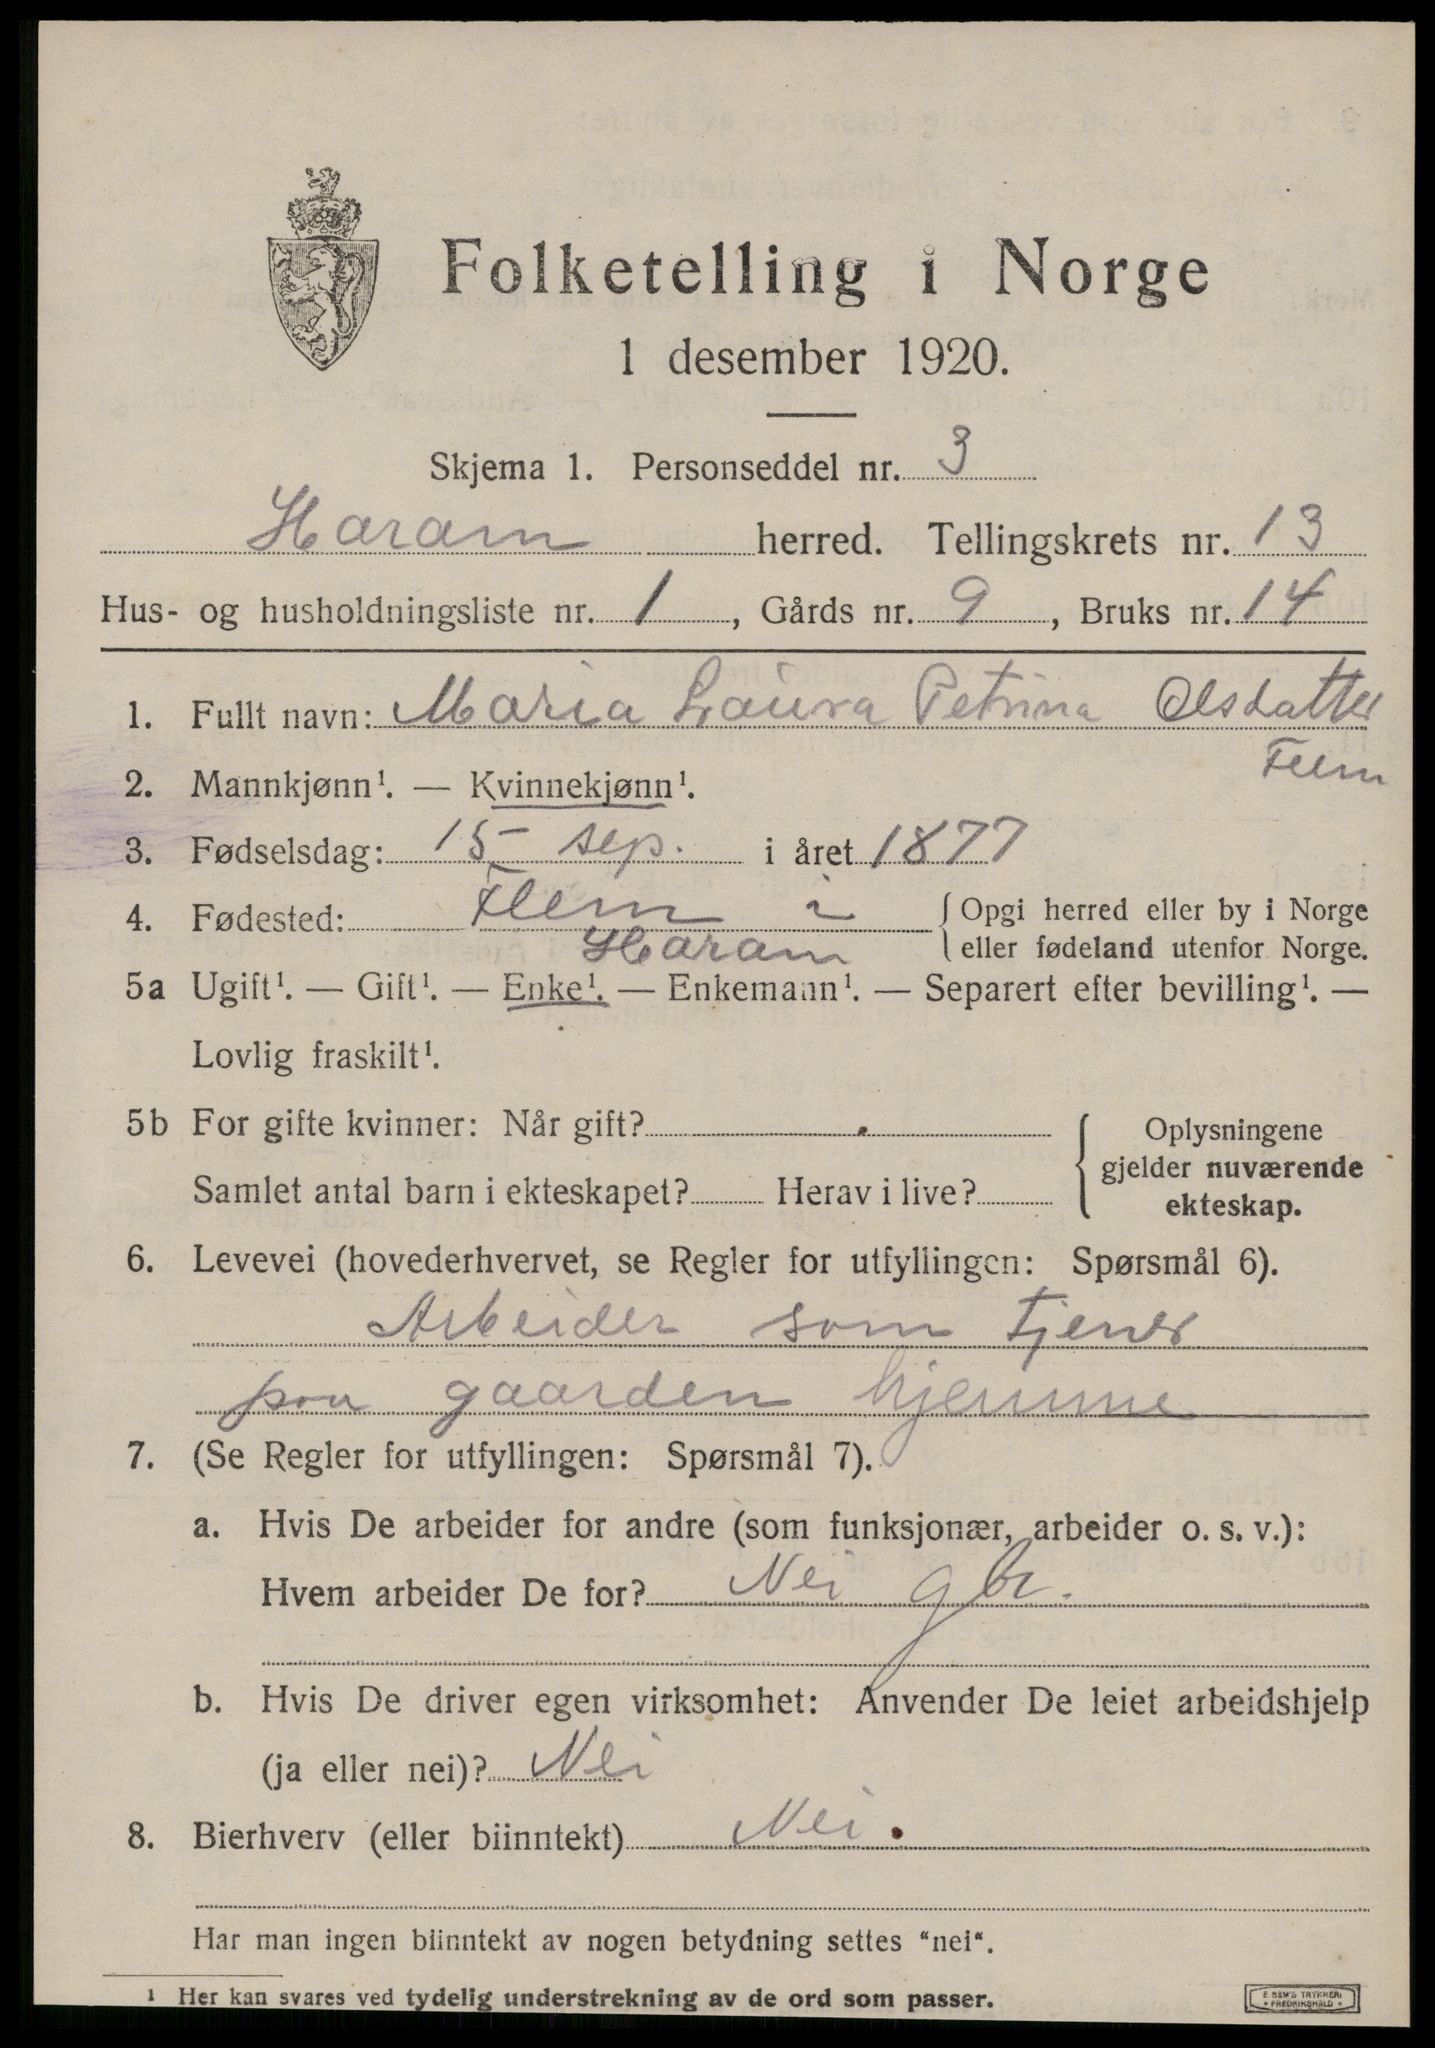 Folketelling i Norge
1 desember 1920.
Skjema 1. Personseddel nr. 3
Haram herred. Tellingskrets nr. 13
Hus- og husholdningsliste nr. 1, Gårds nr. 9, Bruks nr. 14
1. Fullt navn: Maria Laura Petrina Olsdatter
Flem
2. Mannkjønn¹. — Kvinnekjønn¹.
3. Fødselsdag: 15 sep. i året 1877
4. Fødested: Flem i Haram
{ Opgi herred eller by i Norge
eller fødeland utenfor Norge.
5a Ugift¹. — Gift¹. — Enke¹. — Enkemann¹. — Separert efter bevilling¹. —
Lovlig fraskilt¹.
5b For gifte kvinner: Når gift?
Samlet antal barn i ekteskapet? Herav i live?
{ Oplysningene
gjelder nuværende
ekteskap.
6. Levevei (hovederhvervet, se Regler for utfyllingen: Spørsmål 6).
Arbeider som tjener
paa gaarden hjemme
7. (Se Regler for utfyllingen: Spørsmål 7).
a. Hvis De arbeider for andre (som funksjonær, arbeider o. s. v.):
Hvem arbeider De for? Nei gbr.
b. Hvis De driver egen virksomhet: Anvender De leiet arbeidshjelp
(ja eller nei)? Nei
8. Bierhverv (eller biinntekt) Nei.
Har man ingen biinntekt av nogen betydning settes "nei".
¹ Her kan svares ved tydelig understrekning av de ord som passer.
E SEM'S TRYKKERI
• FREDRIKSHALD •